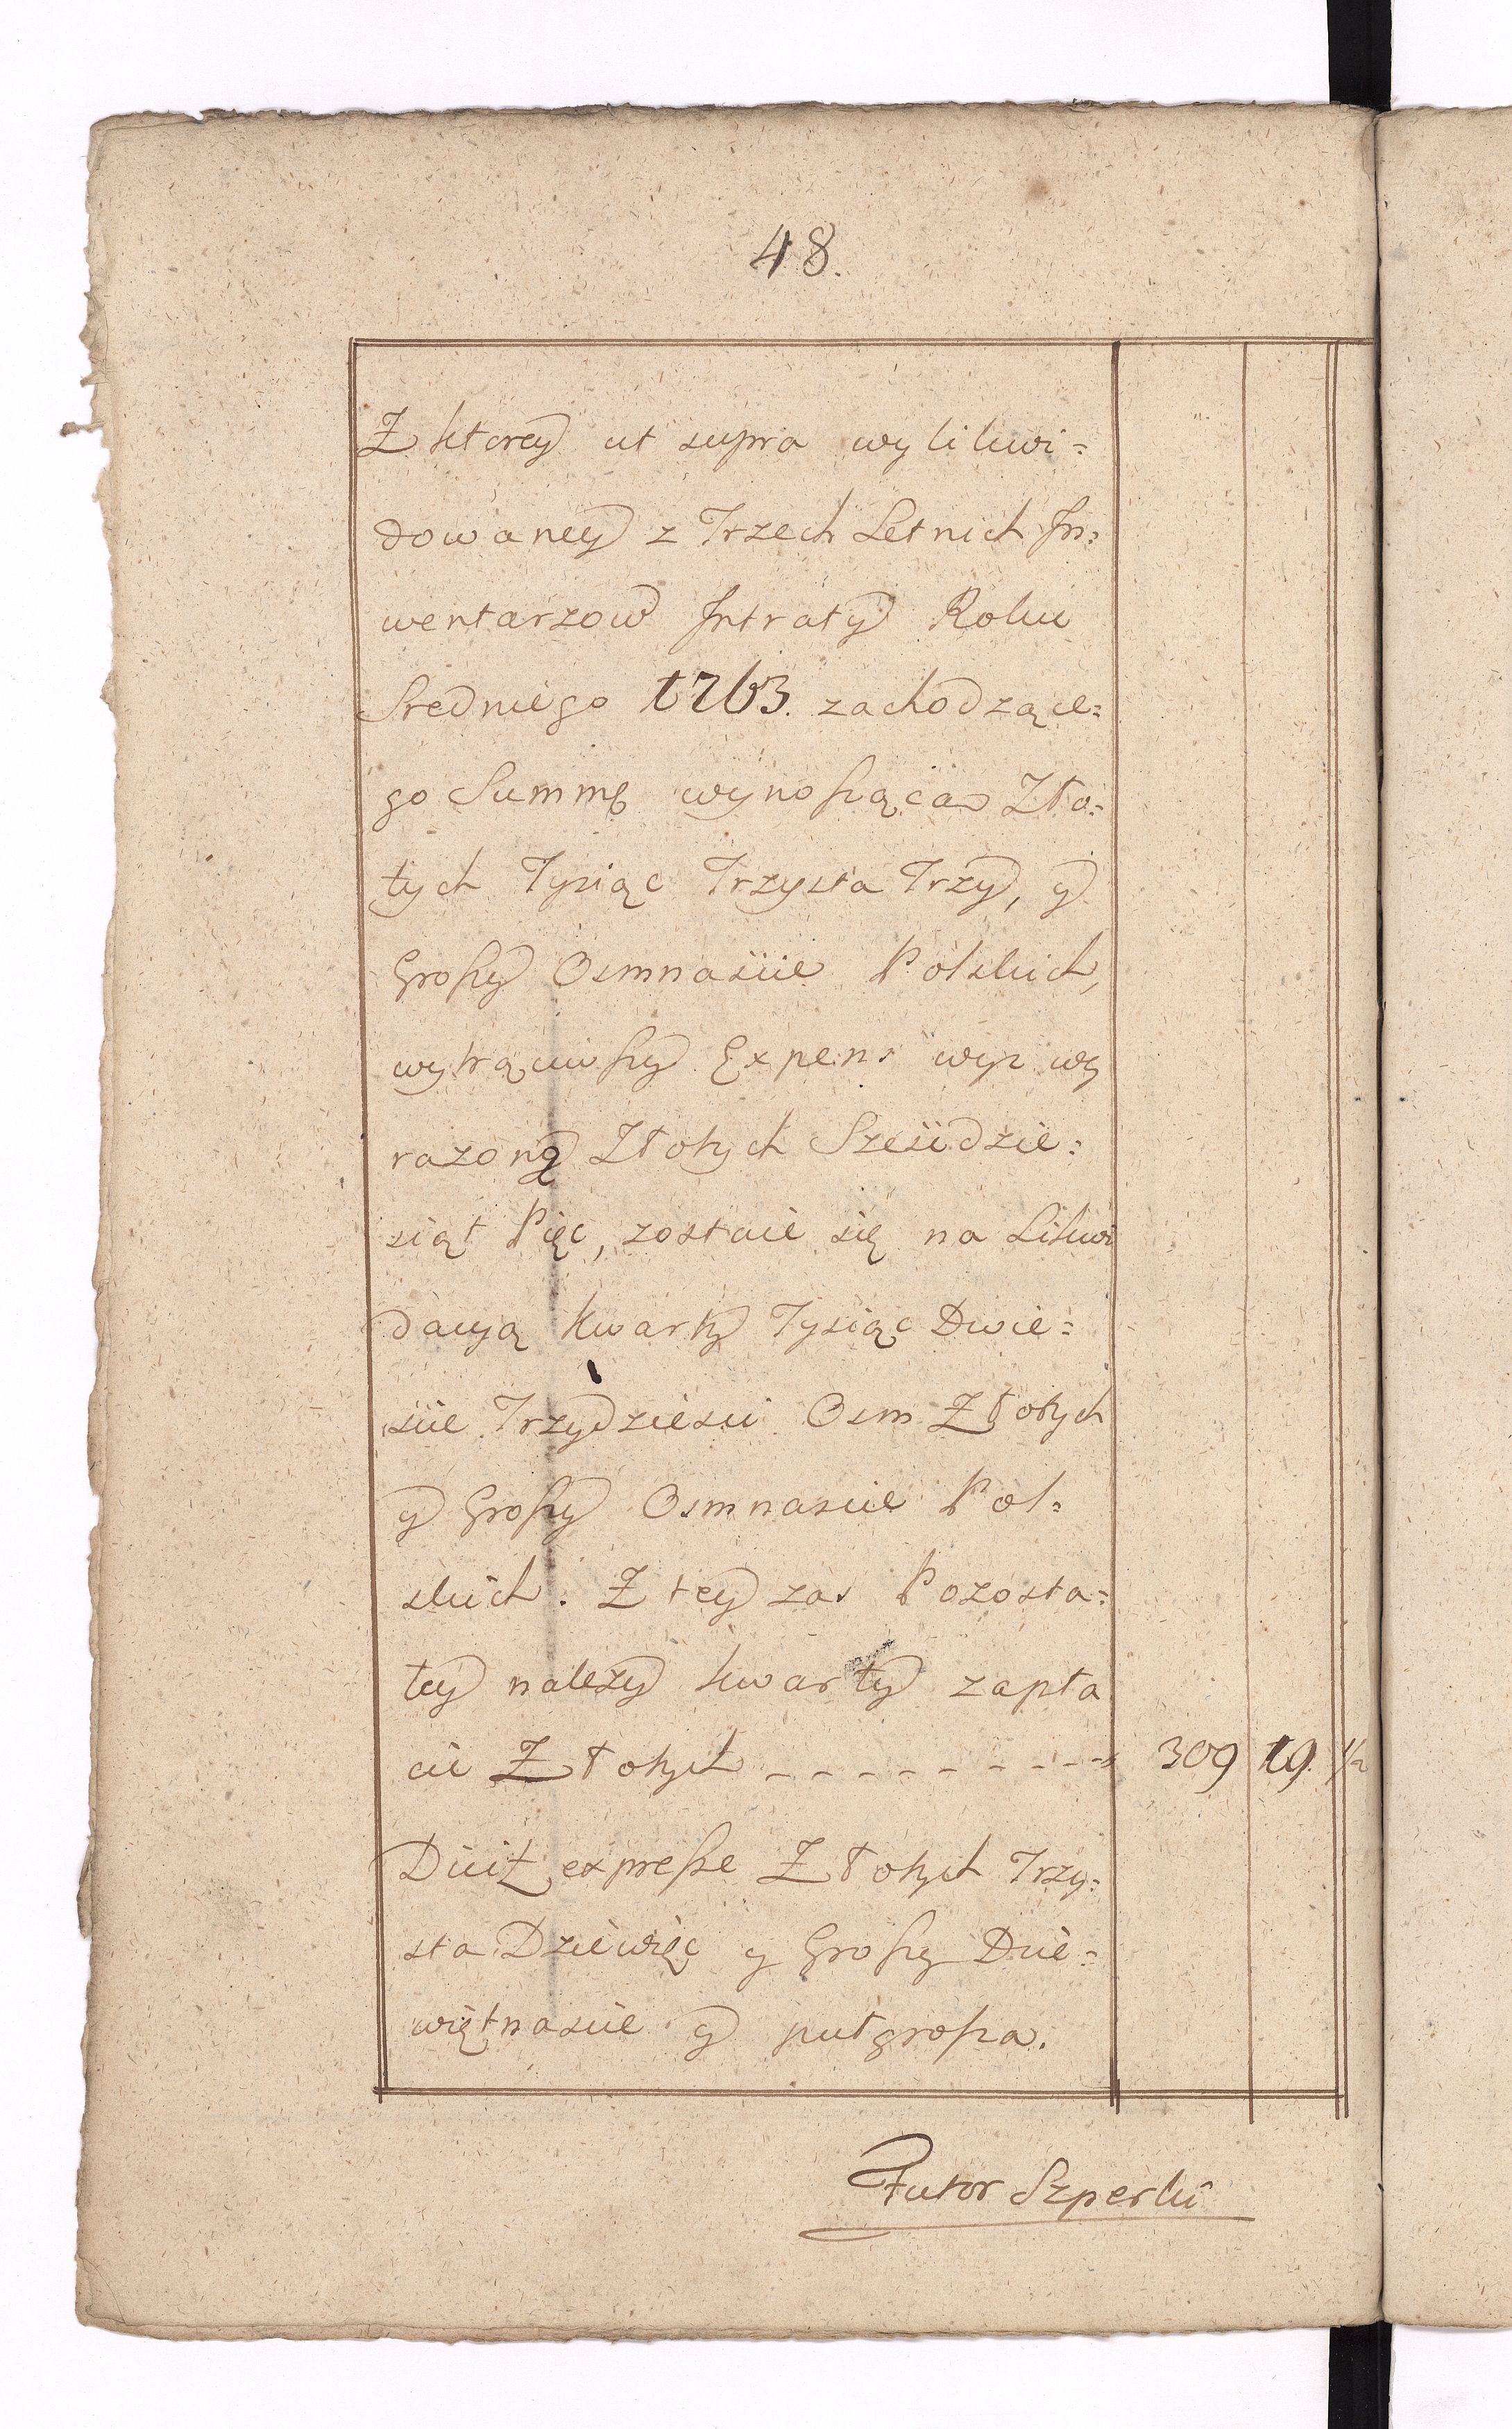 48.
Z ktorey ut supra wylikwi=
dowaney z Trzech Letnich In=
wentarzow Intraty Roku
Sredniego 1763. zachodzące=
go Summę wynoszącą Zło=
tych Tysiąc Trzysta Trzy, y
Groszy Osmnascie Polskich,
wytrąciwszy Expens wyz wy
razoną Złotych Szescdzie=
siąt Pięc, zostaie się na Likwi
dacyą kwarty Tysiąc Dwie=
scie Trzydziesci Osm Złotych
y Groszy Osmnascie Pol=
skich. Z tey zas Pozosta=
łey nalezy kwarty zapła
cic Złotych - - - - - - - - - 309 19. 1/2
Dicit expresse Złotych Trzy=
sta Dziewięc y Groszy Dzie=
więtnascie y pułgrosza.
Futor Szperki